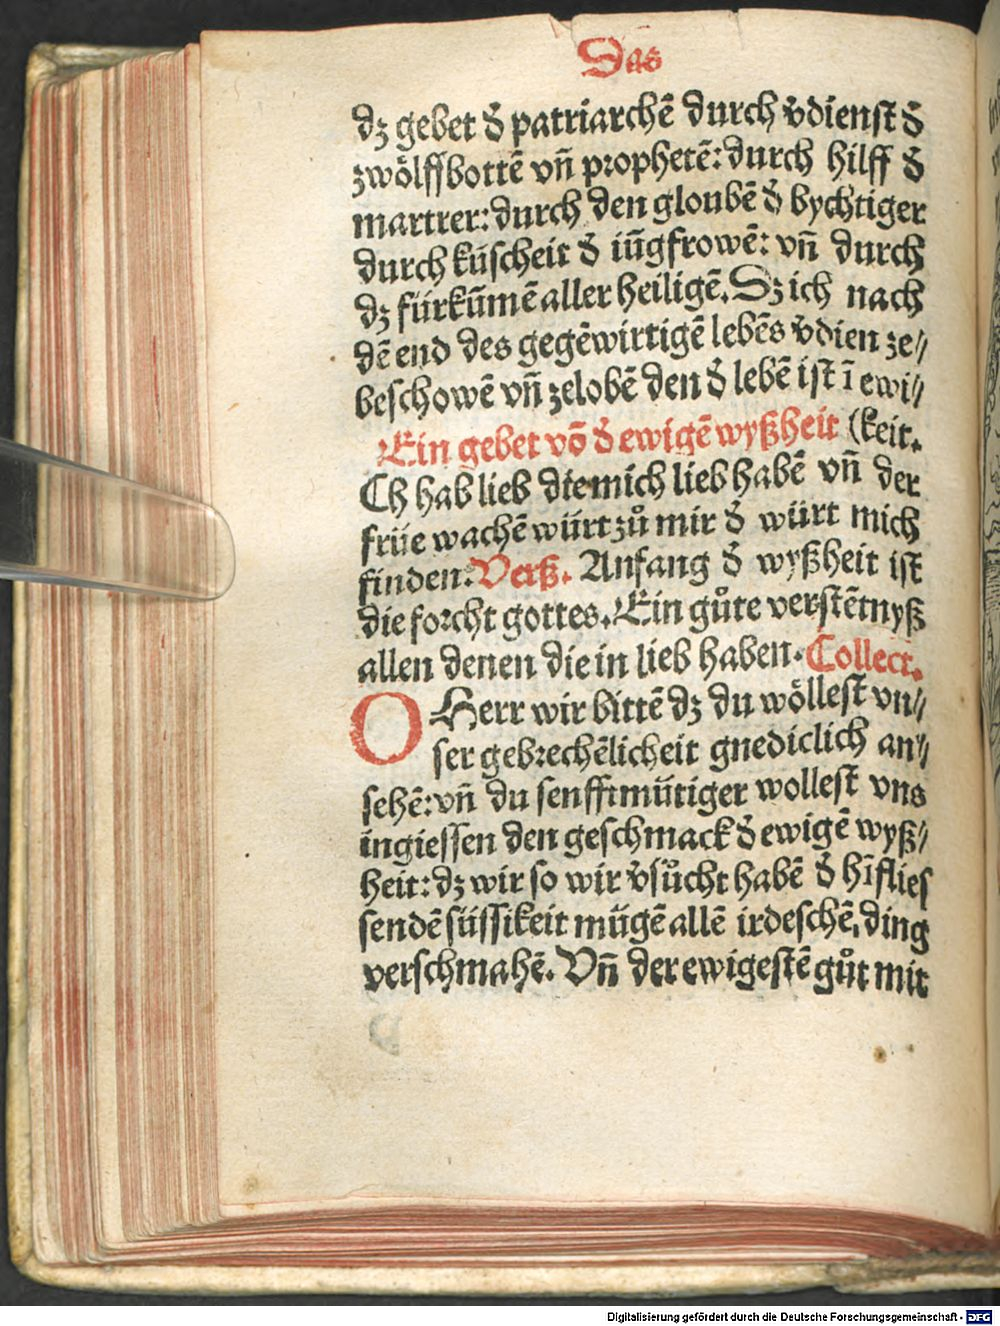 Das
dz gebet d̄ patriarchē durch v̄dienst d̄
zwölffbottē vñ prophetē: durch hilff d̄
martrer: durch den gloubē d̄ bychtiger
durch küscheit d̄ iūgfrowē: vñ durch
dz fürkūmē aller heiligē. Dz ich nach
dē end des gegēwirtigē lebēs v̄dien ze//
beschowē vñ zelobē den d̄ lebē ist ī ewi//
Ein gebet vō d̄ ewigē wyßheit (keit.
Ch hab lieb die mich lieb habē vñ der
früe wachē würt zů mir d̄ würt mich
finden. Verß. Anfang d̄ wyßheit ist
die forcht gottes. Ein gůte verstētnyß
allen denen die in lieb haben. Collect.
O Herr wir bittē dz du wöllest vn//
ser gebrechēlicheit gnediclich an//
sehē: vñ du senfftmütiger wollest vns
ingiessen den geschmack d̄ ewigē wyß//
heit: dz wir so wir v̄sůcht habē d̄ hīflies
sendē süssikeit mügē allē irdeschē ding
verschmahē. Vñ der ewigestē gůt mit
Digitalisierung gefördert durch die Deutsche Forschungsgemeinschaft - DFG